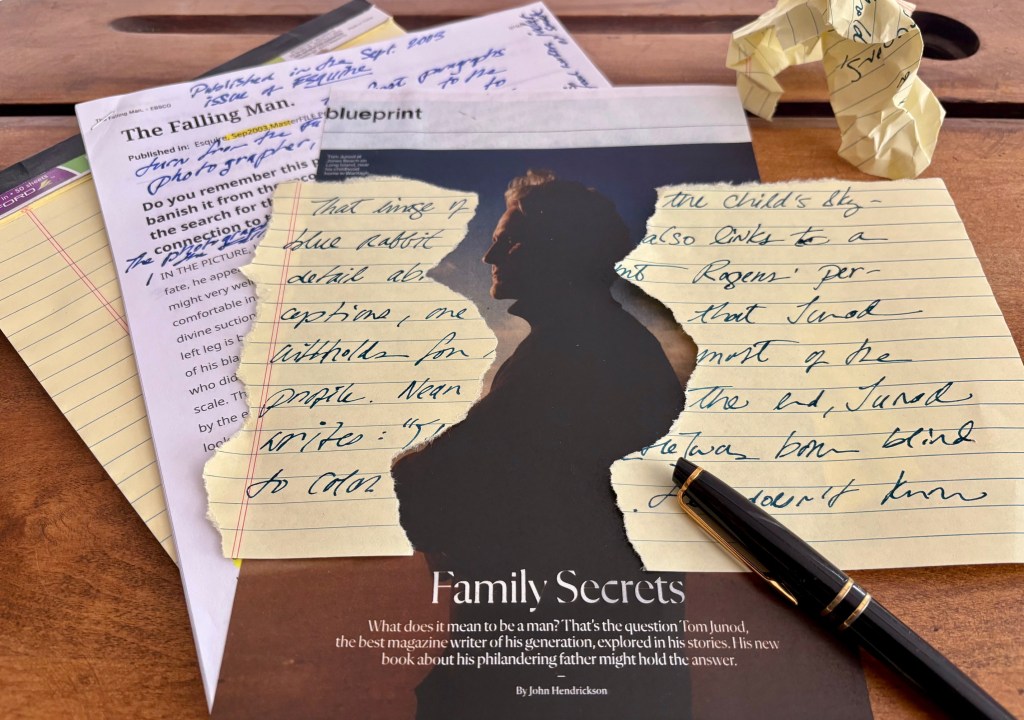 Published in the Sept. 2003
issue of ESQUIRE
The Falling Man. - EBSCO
The Falling Man.
Published in: Esquire, Sep2003, MasterFILE
turn from the
photographer,
Do you remember this
banish it from the
the search for
connection to
IN THE PICTURE,
fate, he appe
might very wel
comfortable in
divine suction
left leg is
of his bla
who did
scale. Th
by the e
look
paragraphs
to the
50 sheets
blueprint
That image of
blue rabbit
detail ab
eptions, one
withholds for
profile. Near
writes:
to color
the child's sky-
also links to a
Rogers' per-
that Junod
most of the
the end, Junod
He was born blind
doesn't know
Family Secrets
What does it mean to be a man? That's the question Tom Junod,
the best magazine writer of his generation, explored in his stories. His new
book about his philandering father might hold the answer.
By John Hendrickson